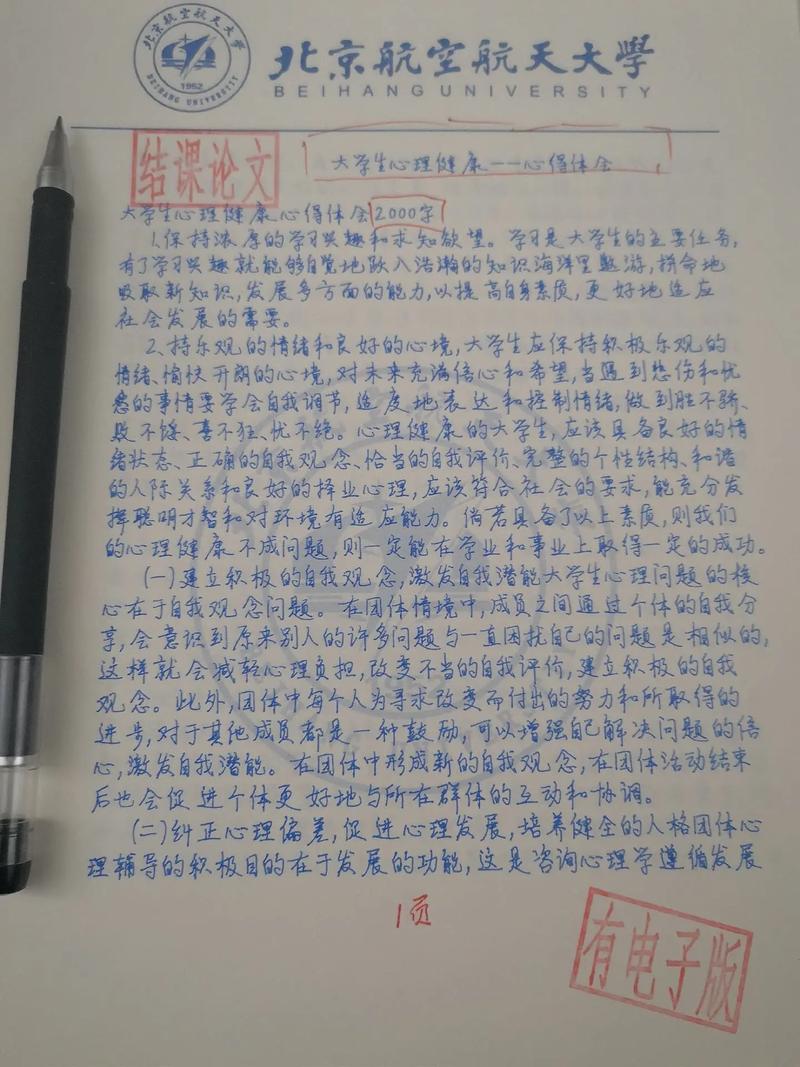 北京航空航天大学
BEIHANG UNIVERSITY
1952
BEIHANG UNIVERSITY
结课论文
大学生心理健康——心得体会
大学生心理健康心得体会2000字
1.保持浓厚的学习兴趣和求知欲望。学习是大学生的主要任务,
有了学习兴趣就能够自觉地跃入浩瀚的知识海洋里遨游,拼命地
吸取新知识,发展多方面的能力,以提高自身素质,更好地适应
社会发展的需要。
2、持乐观的情绪和良好的心境,大学生应保持积极乐观的
情绪、愉快开朗的心境,对未来充满信心和希望,当遇到悲伤和忧
愁的事情要学会自我调节,适度地表达和控制情绪,做到胜不骄、
败不馁、喜不狂、忧不绝。心理健康的大学生,应该具备良好的情
绪状态、正确的自我观念、恰当的自我评价、完整的个性结构、和谐
的人际关系和良好的择业心理,应该符合社会的要求,能充分发
挥聪明才智和对环境有适应能力。倘若具备了以上素质,则我们
的心理健康不成问题,则一定能在学业和事业上取得一定的成功。
(一)建立积极的自我观念,激发自我潜能大学生心理问题的核
心在于自我观念问题。在团体情境中,成员之间通过个体的自我分
享,会意识到原来别人的许多问题与一直困扰自己的问题是相似的,
这样就会减轻心理负担,改变不当的自我评价,建立积极的自我
观念。此外,团体中每个人为寻求改变而付出的努力和所取得的
进步,对于其他成员都是一种鼓励,可以增强自己解决问题的信
心,激发自我潜能。在团体中形成新的自我观念,在团体活动结束
后也会促进个体更好地与所在群体的互动和协调。
(二)纠正心理偏差,促进心理发展,培养健全的人格团体心
理辅导的积极目的在于发展的功能,这是咨询心理学遵循发展
1页
有电子版